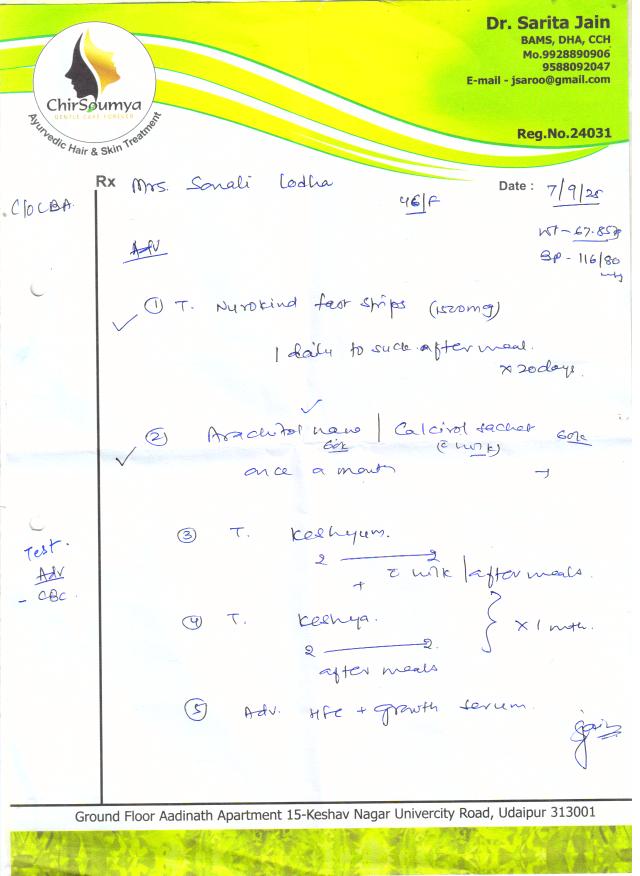 Dr. Sarita Jain
BAMS, DHA, CCH
Mo.9928890906
9588092047
E-mail - jsaroo@gmail.com
Reg.No.24031
ChirSoumya
GENTLE CARE FOREVER
Ayurvedic Hair & Skin Treatment
Rx Mrs. Sonali Lodha
46/F
Date : 7/9/25
C/O
Wt - 67.85
BP - 116/80
Adv
① T. Nurokind fast strips (1500mg)
1 daily to suck after meal.
x 20 days.
② Arachitol nano / Calcirol sachet 60k
60k (c̄ milk)
once a month →
③ T. Keshyum.
2 — 2
+ c̄ milk / after meals.
④ T. Keshya.
2 — 2.
after meals
} x 1 mth.
⑤ Adv. HFC + growth serum.
Jain
Test.
Adv
- CBC.
Ground Floor Aadinath Apartment 15-Keshav Nagar Univercity Road, Udaipur 313001